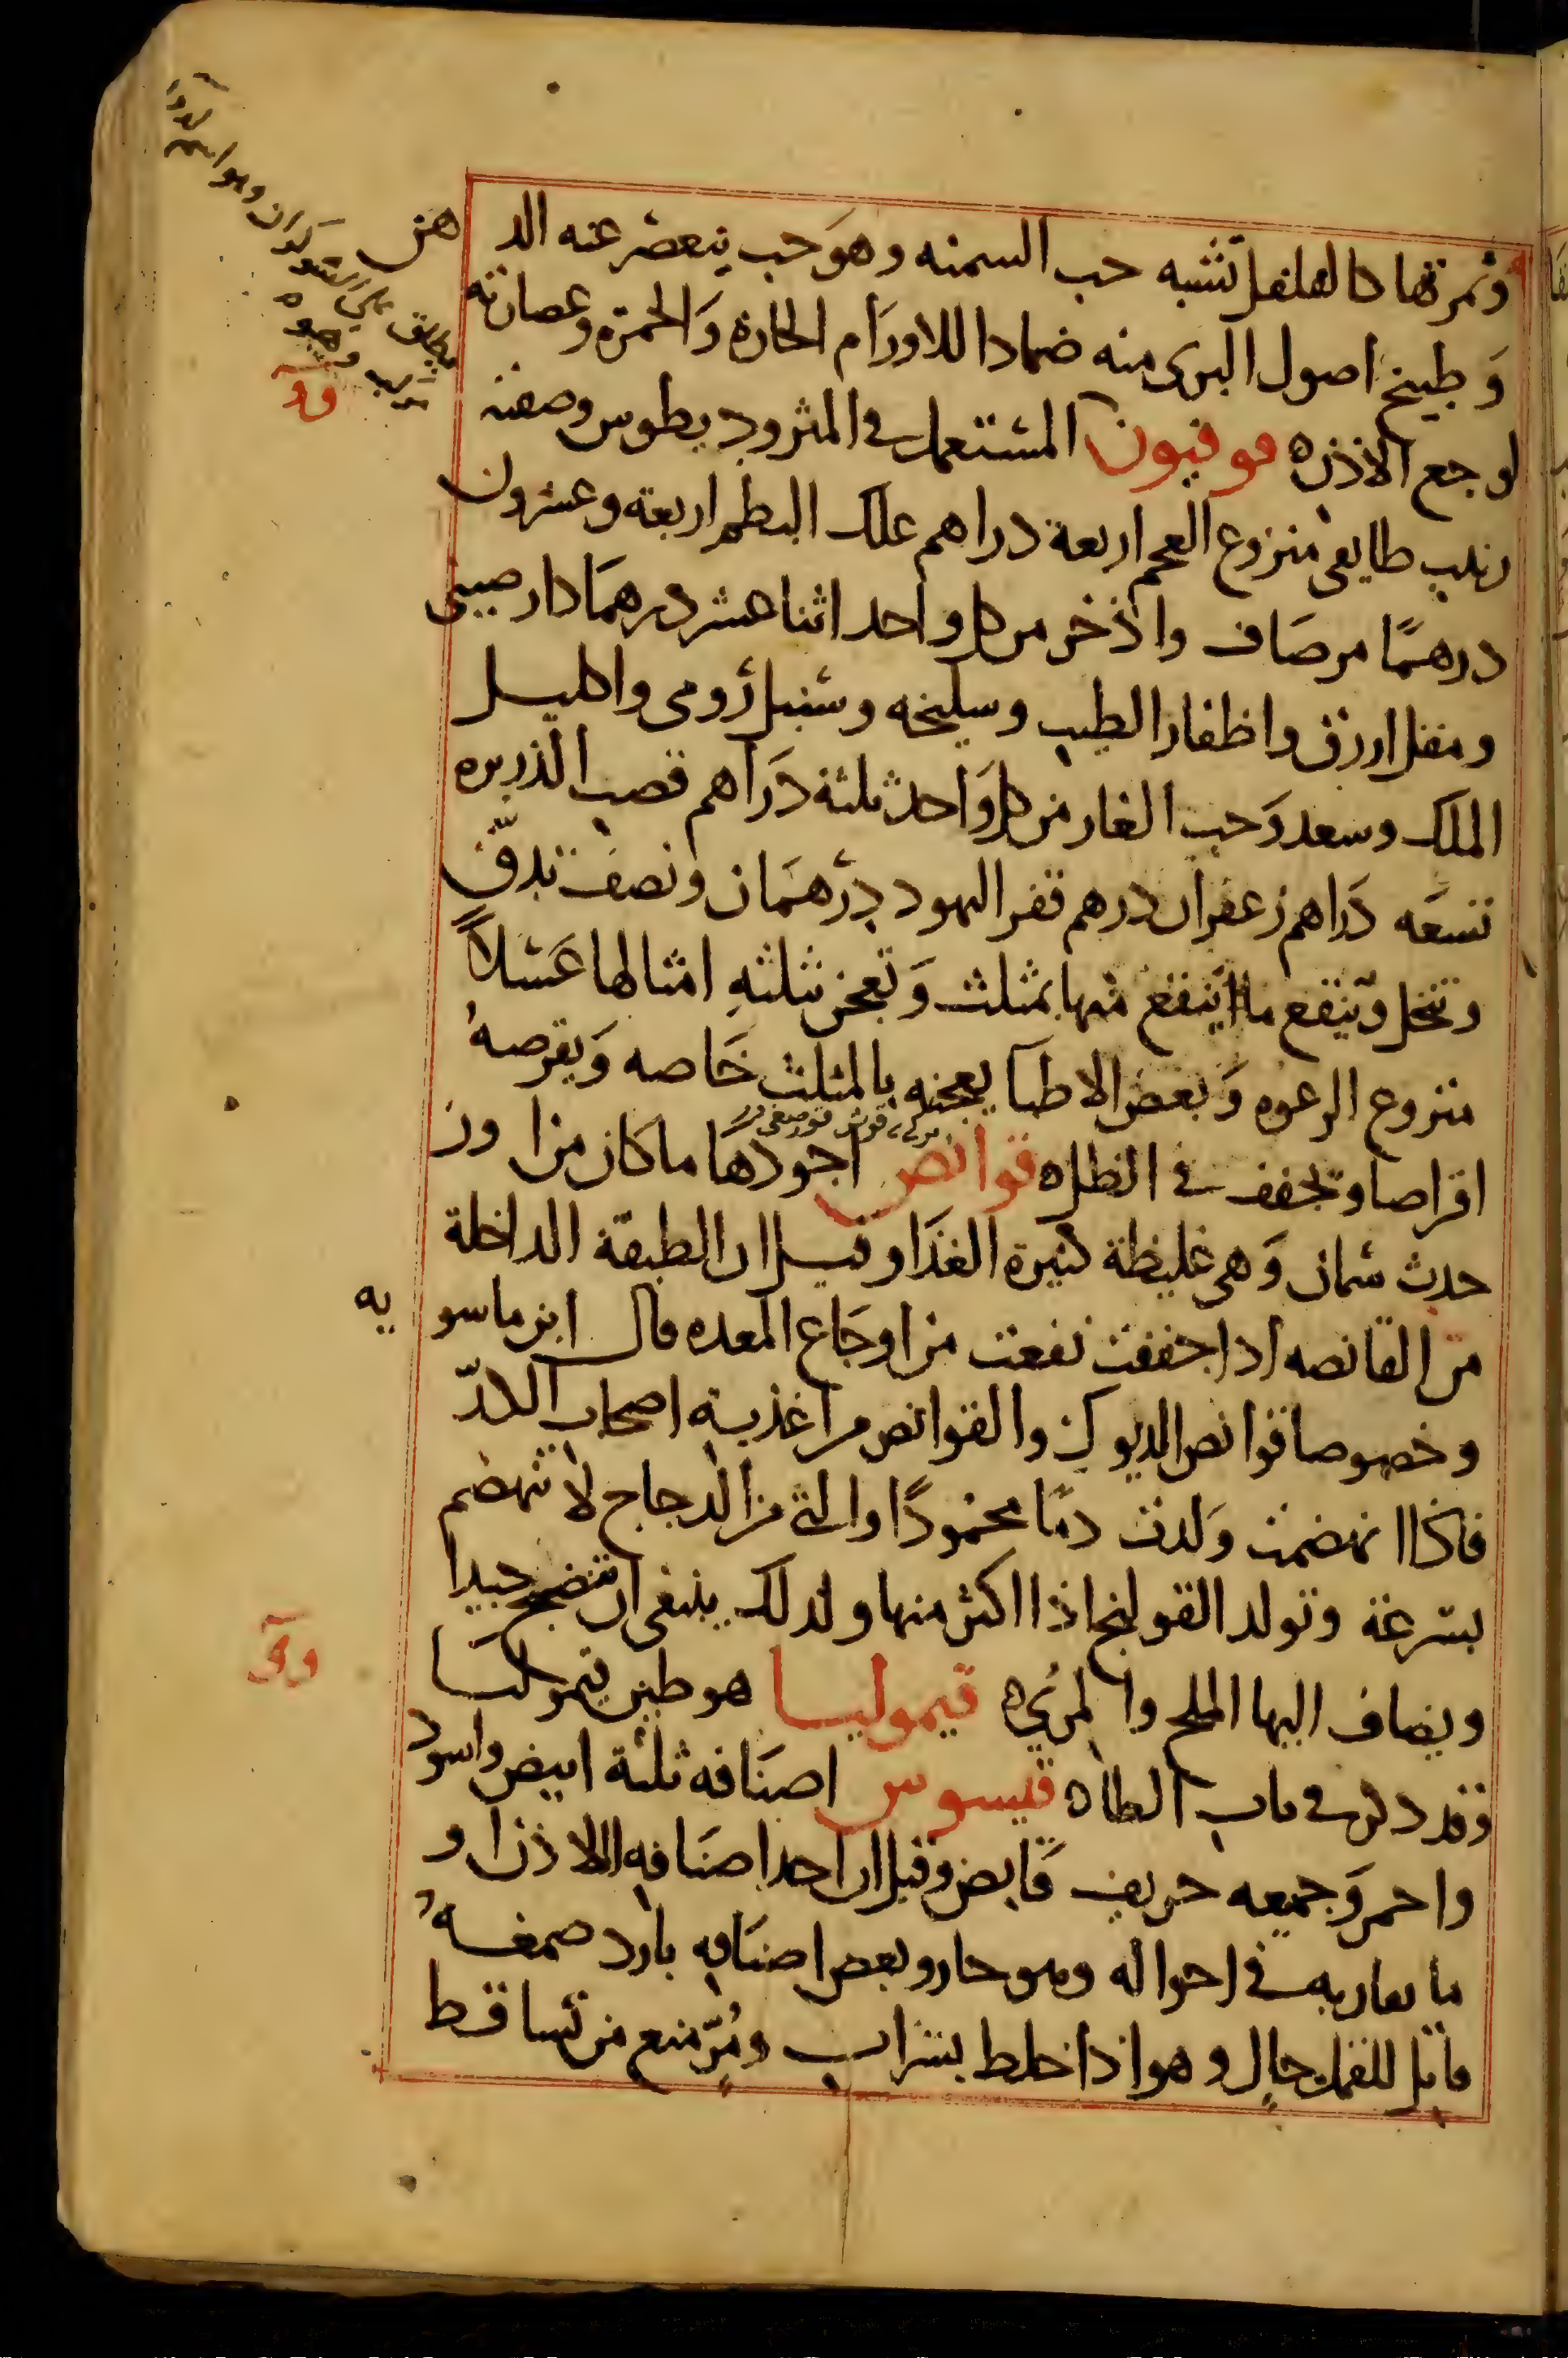 وثمرتها كالفلفل تشبه حب السمنه وهو حب ينعصر عنه الد
هن
وطبيخ اصول البرى منه ضمادا للاورام الحارة والحمرة وعصارته
لوجع الاذن ه قوفيون المستعمل فى المثروديطوس وصفته
زبيب طايفى منزوع العجم اربعة دراهم علك البطم اربعة وعشرون
درهمًا مر صاف واذخر من كل واحد اثنا عشر درهما دارصينى
ومقل ازرق واظفار الطيب وسليخه وسنبل رومى واكليل
الملك وسعد وحب الغار من كل واحد ثلثة دراهم قصب الذريره
تسعه دراهم زعفران درهم قفر اليهود درهمان ونصف تدقّ
وتنخل وينقع ما ينقع منها بمثلث وتعجن بثلثه امثالها عسلاً
منزوع الرغوه وبعض الاطبا يعجنه بالمثلث خاصه ويقرصهُ
اقراصا وتجفف فى الظل ه قوانص اجودها ما كان من اوز
حدث سمان وهى غليظة كثيرة الغذا وقيل ان الطبقة الداخلة
من القانصه اذا جففت نفعت من اوجاع المعده قال ابن ماسو
يه
وخصوصا قوانص الديوك والقوانص من اغذية اصحاب الكدّ
فاذا انهضمت ولدت دمًا محمودًا والتى من الدجاج لا تنهضم
بسرعة وتولد القولنج اذا اكثر منها ولذلك ينبغى ان تنضج جيدا
ويضاف اليها الملح والمرى ه قيموليا هو طين قيموليا
وقد ذكر فى باب الطا ه قيسوس اصنافه ثلثة ابيض واسود
واحمر وجميعه حريف قابض وقيل ان احد اصنافه اللاذن او
ما يقاربه فى احواله وهو حار وبعض اصنافه بارد صمغهُ
قاتل للقمل جال وهو اذا خلط بشراب ومُرّ منع من تساقط